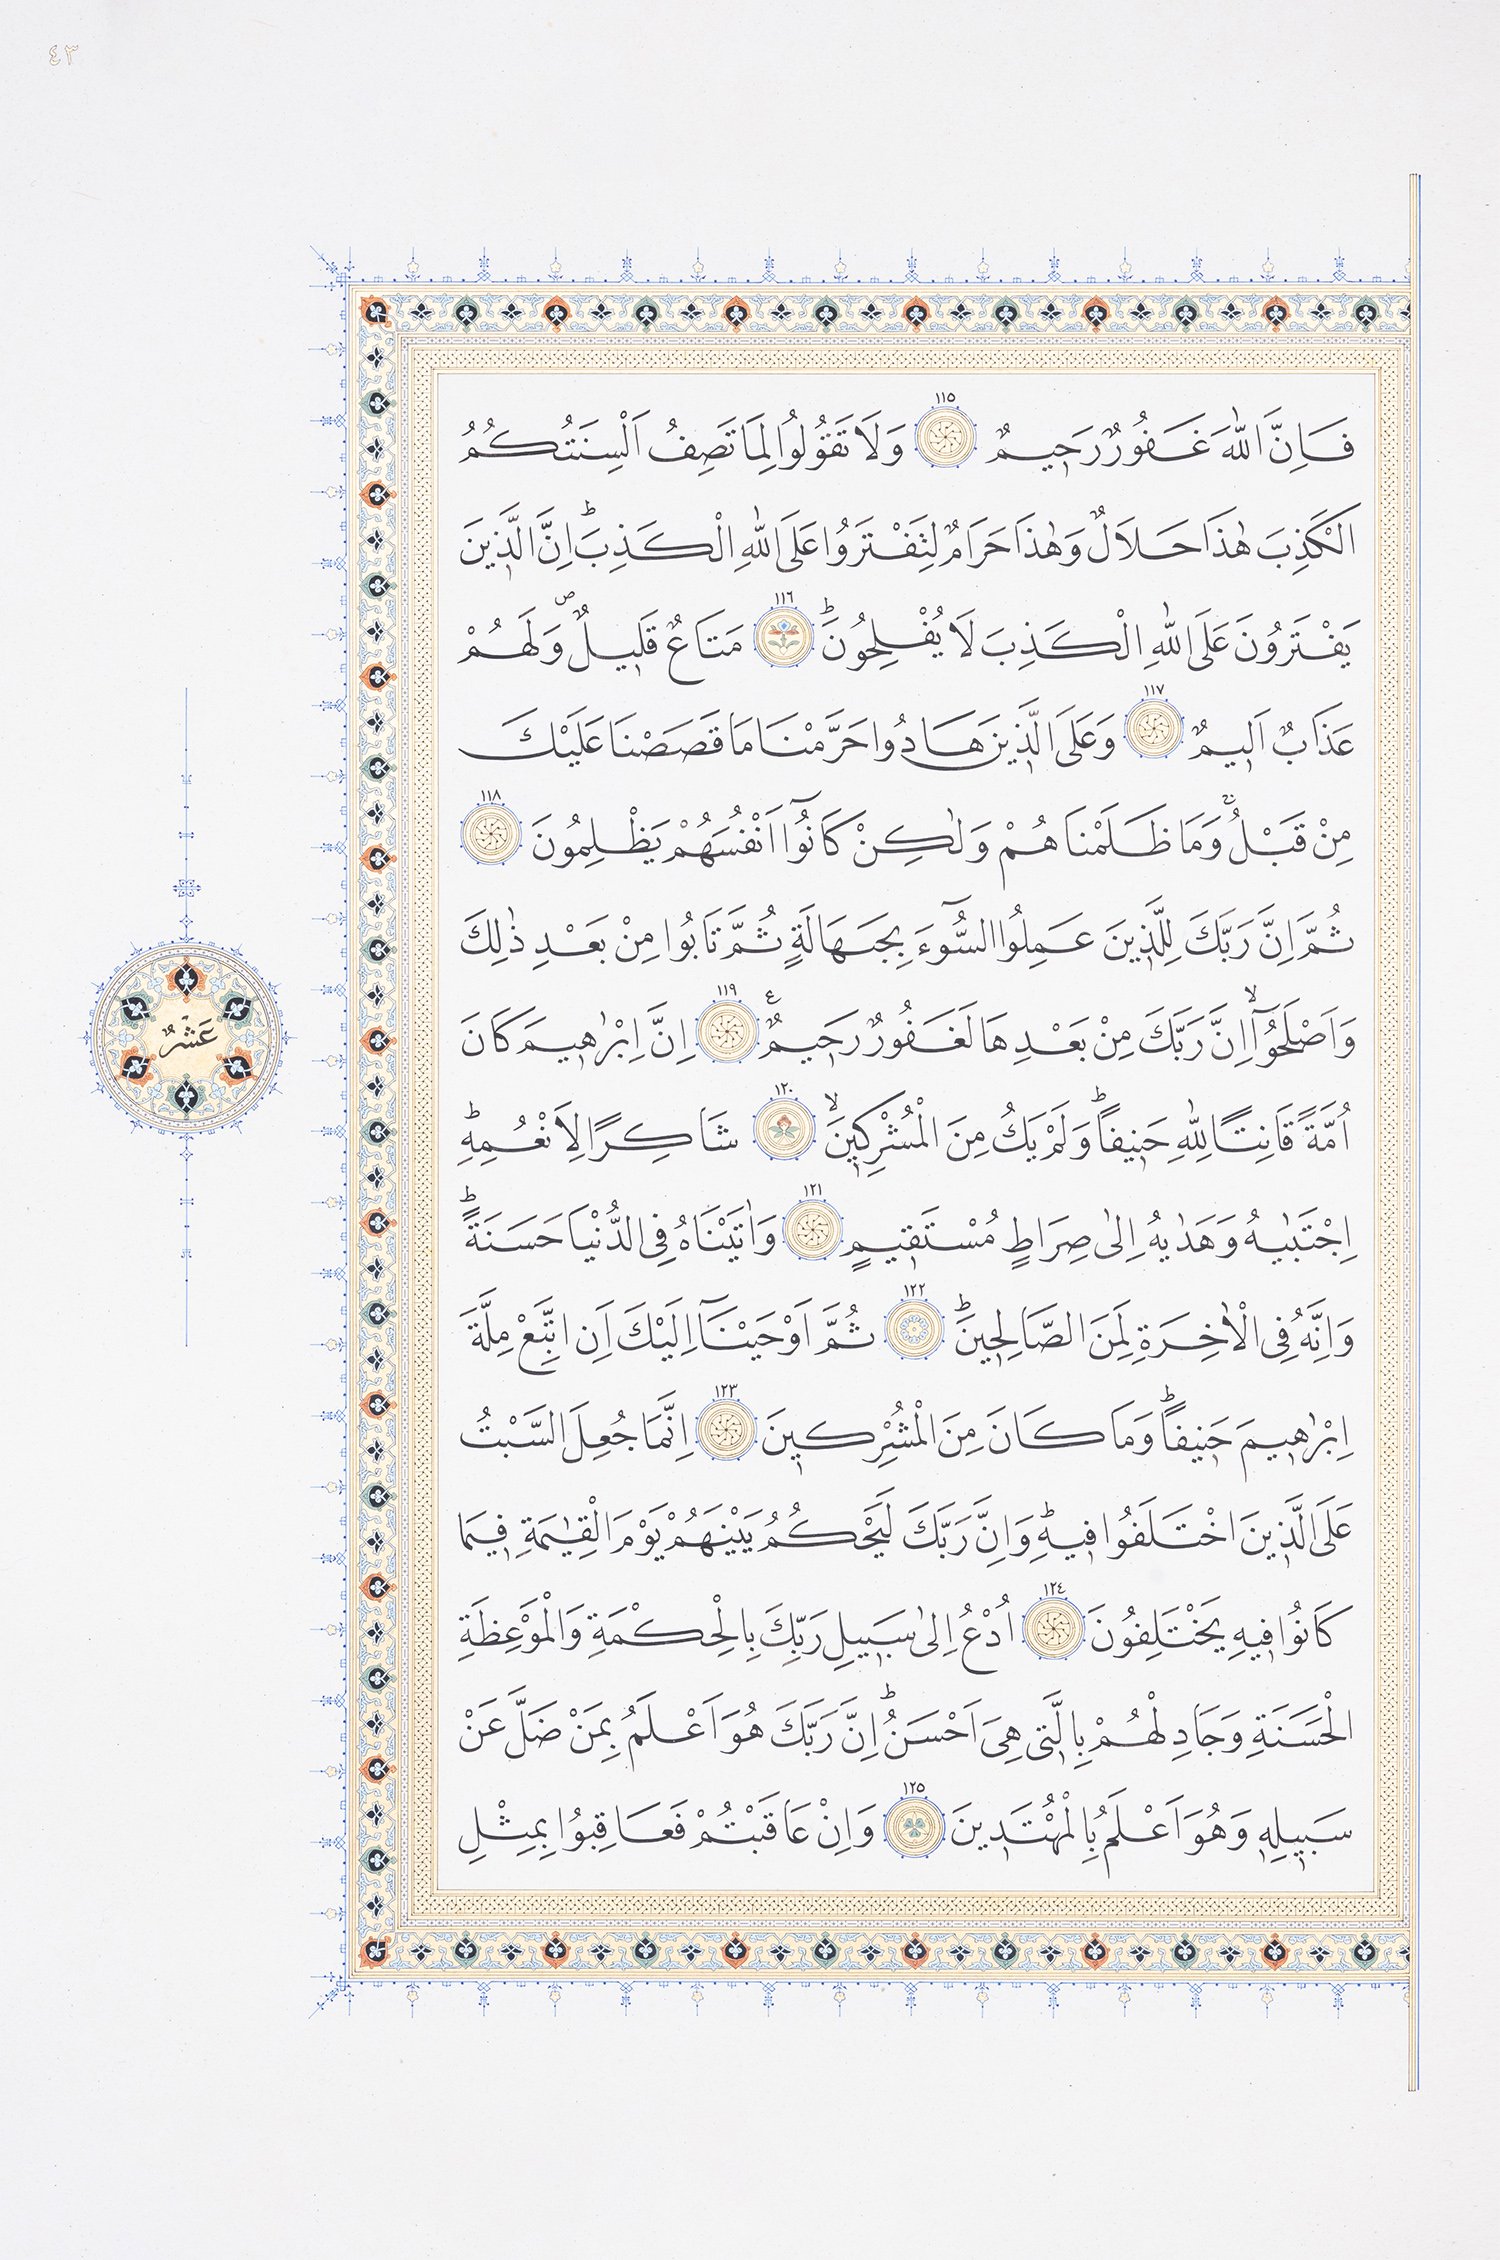 ٤٣
١١٥
فَاِنَّ اللّٰهَ غَفُورٌ رَحٖيمٌ وَلَا تَقُولُوا لِمَا تَصِفُ اَلْسِنَتُكُمُ
الْكَذِبَ هٰذَا حَلَالٌ وَهٰذَا حَرَامٌ لِتَفْتَرُوا عَلَى اللّٰهِ الْكَذِبَؕ اِنَّ الَّذٖينَ
١١٦
يَفْتَرُونَ عَلَى اللّٰهِ الْكَذِبَ لَا يُفْلِحُونَؕ مَتَاعٌ قَلٖيلٌ وَلَهُمْ
١١٧
عَذَابٌ اَلٖيمٌ وَعَلَى الَّذٖينَ هَادُوا حَرَّمْنَا مَا قَصَصْنَا عَلَيْكَ
١١٨
مِنْ قَبْلُۚ وَمَا ظَلَمْنَاهُمْ وَلٰكِنْ كَانُٓوا اَنْفُسَهُمْ يَظْلِمُونَ
ثُمَّ اِنَّ رَبَّكَ لِلَّذٖينَ عَمِلُوا السُّٓوءَ بِجَهَالَةٍ ثُمَّ تَابُوا مِنْ بَعْدِ ذٰلِكَ
١١٩
وَاَصْلَحُٓواۙ اِنَّ رَبَّكَ مِنْ بَعْدِهَا لَغَفُورٌ رَحٖيمٌ ع اِنَّ اِبْرٰهٖيمَ كَانَ
١٢٠
اُمَّةً قَانِتًا لِلّٰهِ حَنٖيفًاؕ وَلَمْ يَكُ مِنَ الْمُشْرِكٖينَۙ شَاكِرًا لِاَنْعُمِهٖؕ
١٢١
اِجْتَبٰيهُ وَهَدٰيهُ اِلٰى صِرَاطٍ مُسْتَقٖيمٍ وَاٰتَيْنَاهُ فِى الدُّنْيَا حَسَنَةًؕ
١٢٢
وَاِنَّهُ فِى الْاٰخِرَةِ لَمِنَ الصَّالِحٖينَؕ ثُمَّ اَوْحَيْنَٓا اِلَيْكَ اَنِ اتَّبِعْ مِلَّةَ
١٢٣
اِبْرٰهٖيمَ حَنٖيفًاؕ وَمَا كَانَ مِنَ الْمُشْرِكٖينَ اِنَّمَا جُعِلَ السَّبْتُ
عَلَى الَّذٖينَ اخْتَلَفُوا فٖيهِؕ وَاِنَّ رَبَّكَ لَيَحْكُمُ بَيْنَهُمْ يَوْمَ الْقِيٰمَةِ فٖيمَا
١٢٤
كَانُوا فٖيهِ يَخْتَلِفُونَ اُدْعُ اِلٰى سَبٖيلِ رَبِّكَ بِالْحِكْمَةِ وَالْمَوْعِظَةِ
الْحَسَنَةِ وَجَادِلْهُمْ بِالَّتٖى هِىَ اَحْسَنُؕ اِنَّ رَبَّكَ هُوَ اَعْلَمُ بِمَنْ ضَلَّ عَنْ
١٢٥
سَبٖيلِهٖ وَهُوَ اَعْلَمُ بِالْمُهْتَدٖينَ وَاِنْ عَاقَبْتُمْ فَعَاقِبُوا بِمِثْلِ
عَشْرٌ